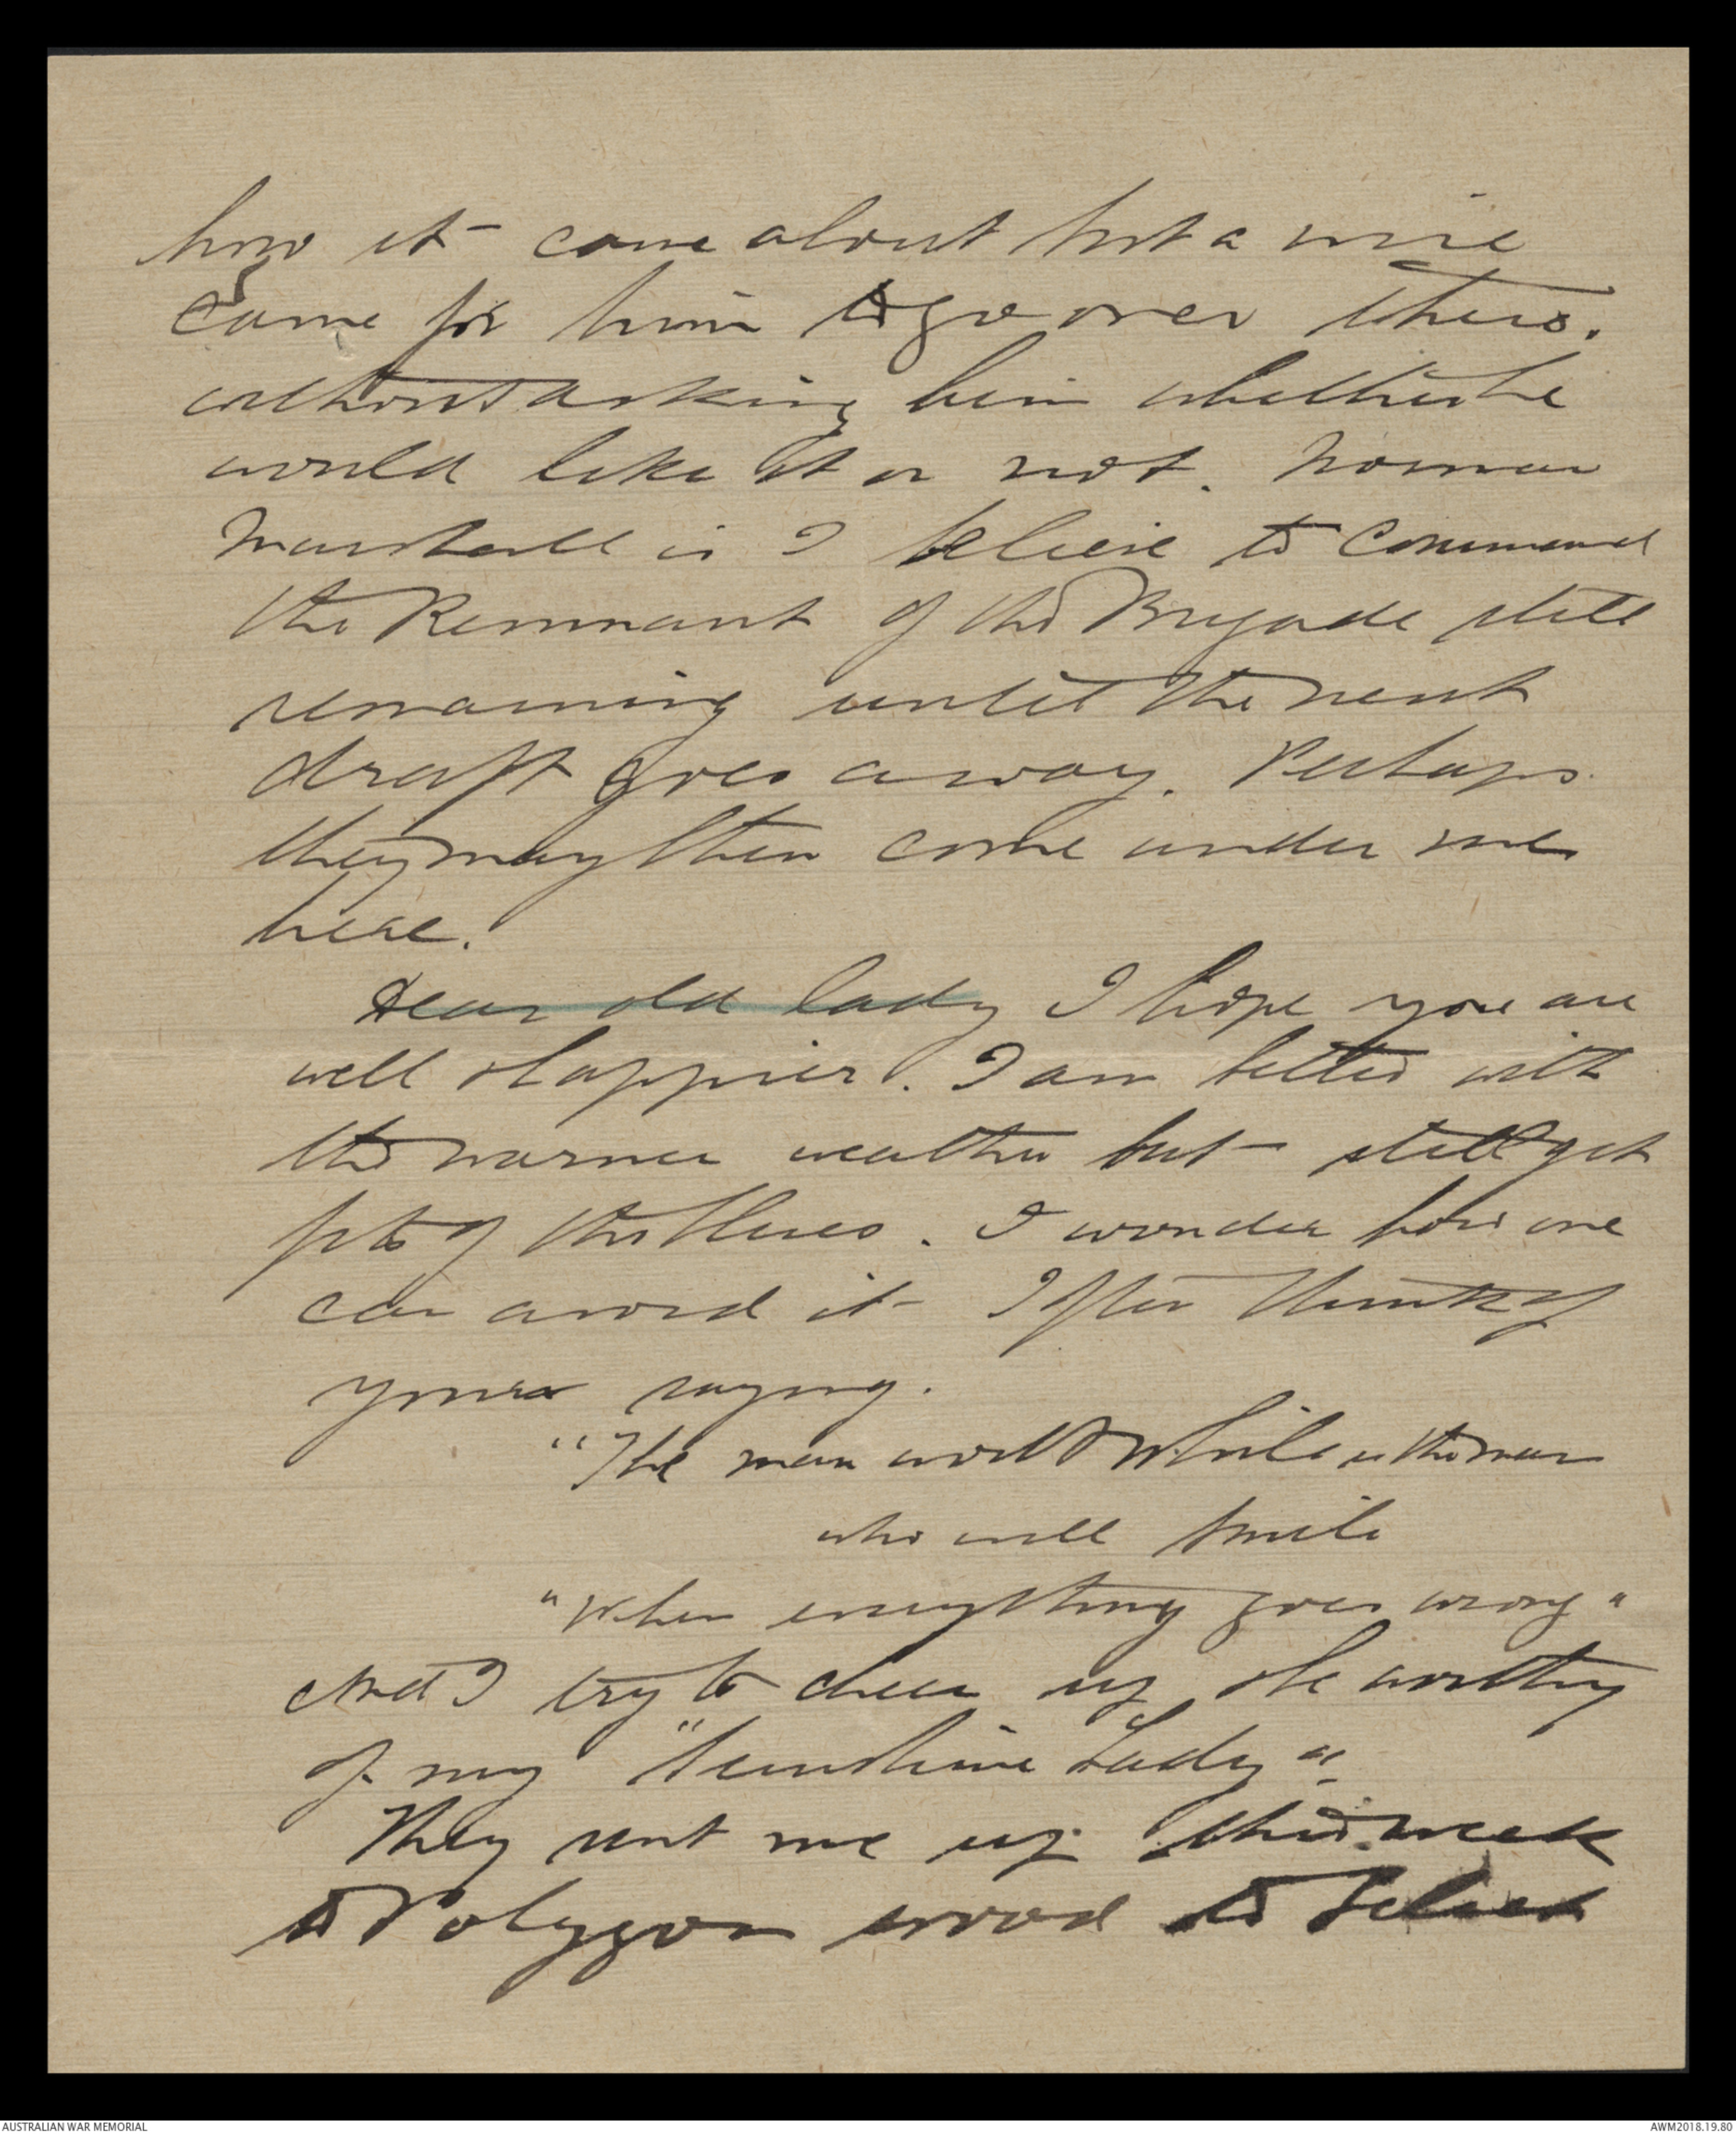 how it came about but a wire
came for him to go over there.
without asking him whether he
would like it or not. Norman
Marshall is I believe to command
the Remnant of the Brigade still
remaining until the next
draft goes away. Perhaps
they may then come under me
here.
Dear old lady I hope you are
well & happier. I am better with
the warmer weather but still get
fits of the blues. I wonder how one
can avoid it I often think of
your saying.
"The man worth while is the man
who will smile
"When everything goes wrong"
And I try to cheer up & be worthy
of my "Sunshine Lady".
They sent me up this week
to Polygon wood to select
AUSTRALIAN WAR MEMORIAL
AWM2018.19.80